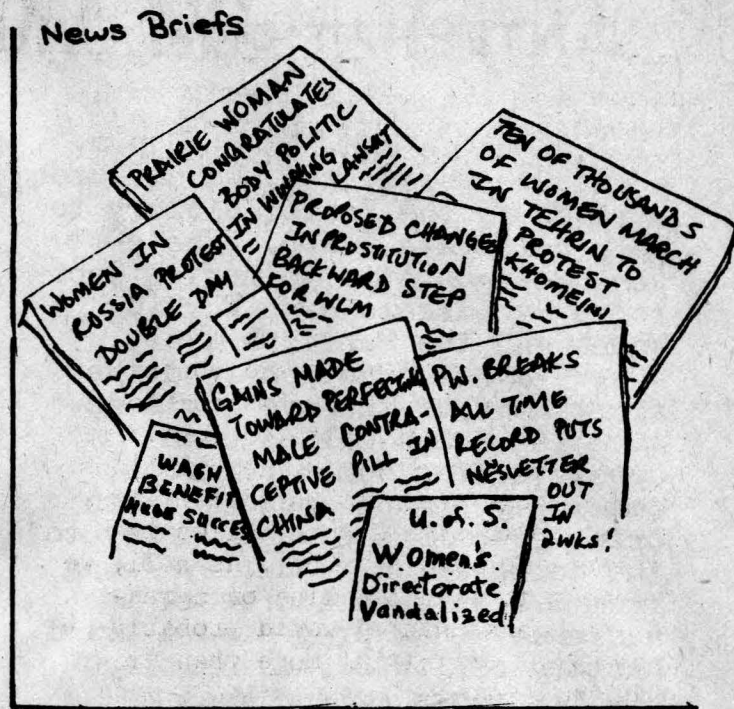 News Briefs
PRAIRIE WOMAN
CONGRATULATES
BODY POLITIC
IN WINNING
LANSUIT
TEN OF THOUSANDS
OF WOMEN MARCH
IN TEHRIN TO
PROTEST
KHOMEINI
WOMEN IN
ROSSIA PROTEST
DOUBLE DAY
PROPOSED CHANGES
IN PROSTITUTION
BACKWARD STEP
FOR WLM
GAINS MADE
TOWARD PERFECTING
MALE CONTRA-
CEPTIVE PILL IN
CHINA
P.W. BREAKS
ALL TIME
RECORD PUTS
NESLETTER
OUT
IN
2WKS!
WAGH
BENEFIT
HUGE SUCCESS
U. of. S.
Women's
Directorate
Vandalized